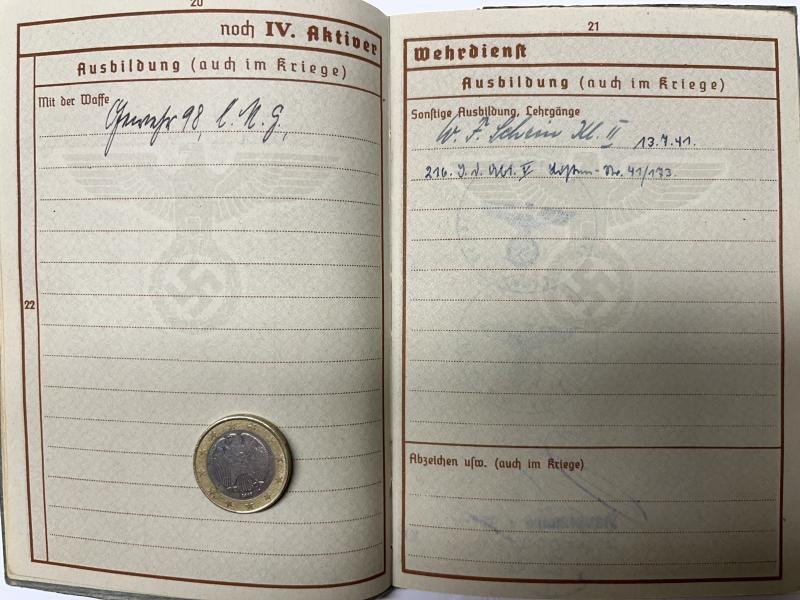 20
noch IV. Aktiver
Ausbildung (auch im Kriege)
Mit der Waffe
Gewehr 98, l. M. G.,
22
21
Wehrdienst
Ausbildung (auch im Kriege)
Sonstige Ausbildung, Lehrgänge
W. F. Schein Kl. II 13.7.41.
216. I. d. Abt. V 41/173.
Abzeichen usw. (auch im Kriege)